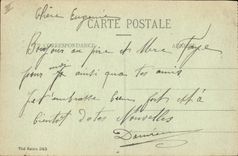 Chère Eugénie
CARTE POSTALE
CORRESPONDANCE
Bonjour au père et Mère Faye
pour moi ainsi qua tes amis
Je t'embrasse bien fort et à
bientôt de tes Nouvelles